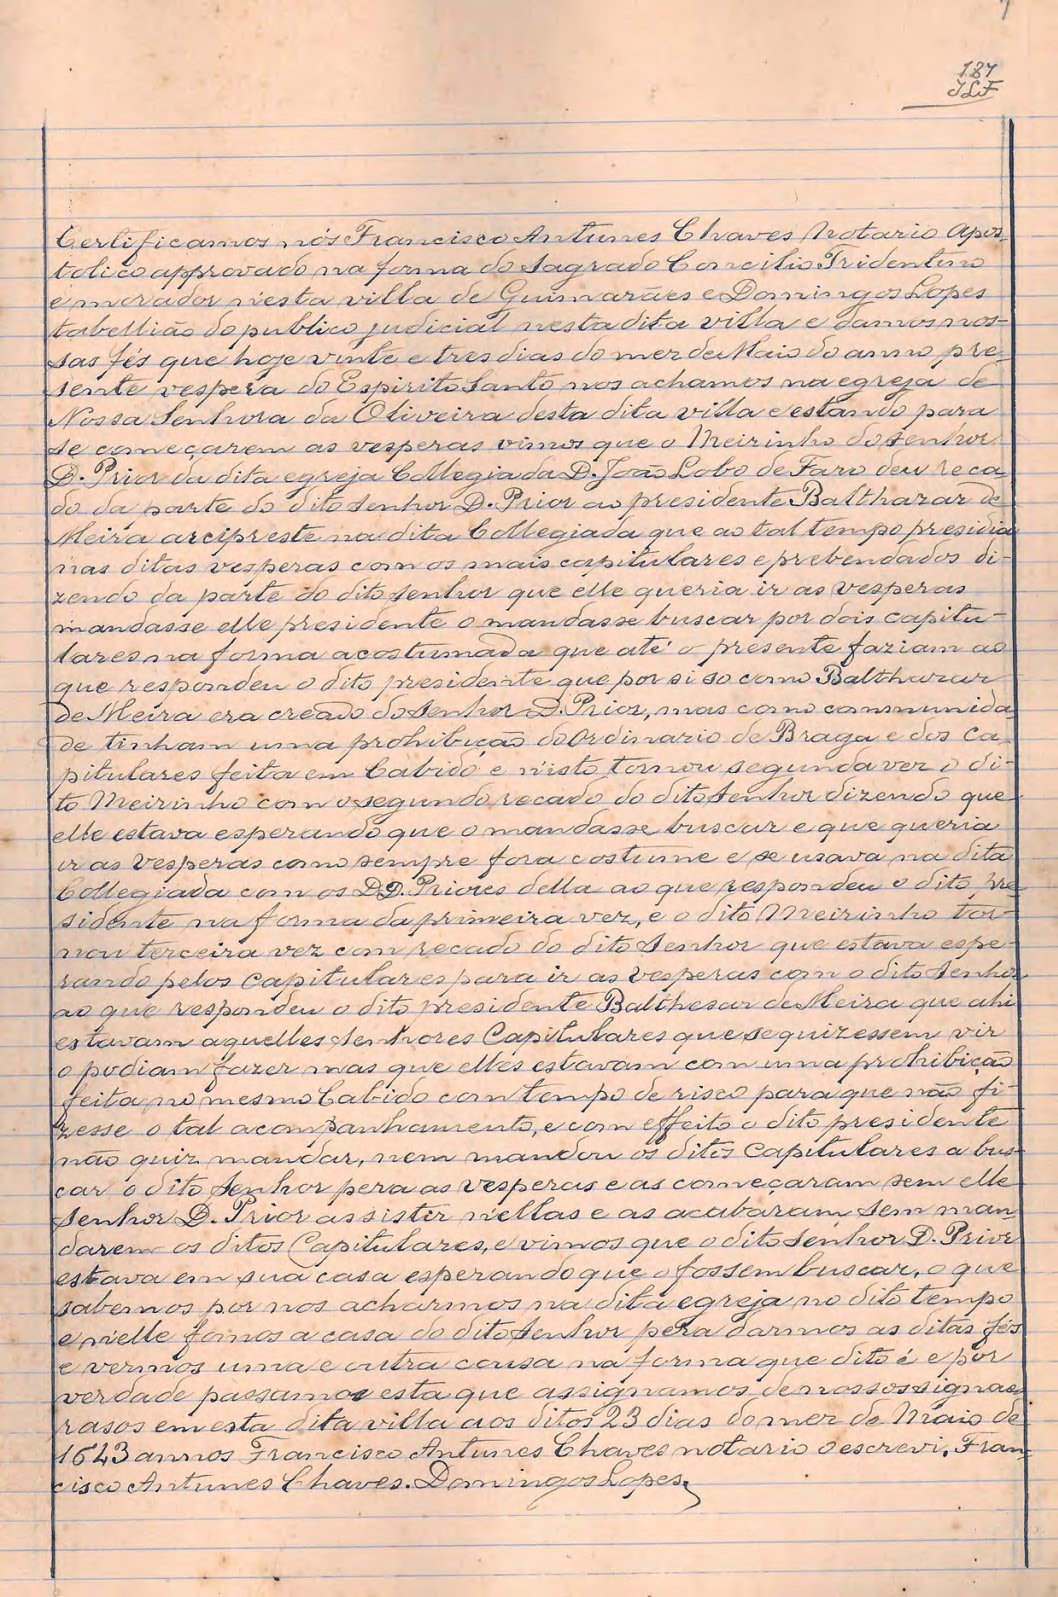 187
JLF
Certificamos nós Francisco Antunes Chaves Notario Apos-
tolico approvado na forma do Sagrado Concilio Tridentino
e morador n'esta villa de Guimarães e Domingos Lopes
tabellião do publico judicial nesta dita villa e damos nos-
sas fés que hoje vinte e tres dias do mez de Maio do anno pre-
sente vespera do Espirito Santo nos achamos na egreja de
Nossa Senhora da Oliveira desta dita villa e estando para
se começarem as vesperas vimos que o Meirinho do senhor
D. Prior da dita egreja Collegiada D. João Lobo de Faro deu reca-
do da parte do dito senhor D. Prior ao presidente Balthazar de
Meira arcipreste na dita Collegiada que ao tal tempo presidia
nas ditas vesperas com os mais capitulares e prebendados di-
zendo da parte do dito senhor que elle queria ir as vesperas
mandasse elle presidente o mandasse buscar por dois capitu-
lares na forma acostumada que até o presente faziam ao
que respondeu o dito presidente que por si so como Balthazar
de Meira era creado do Senhor D. Prior, mas como communida-
de tinham uma prohibição do Ordinario de Braga e dos Ca-
pitulares feita em Cabido e n'isto tornou segunda vez o di-
to Meirinho com o segundo recado do dito senhor dizendo que
elle estava esperando que o mandasse buscar e que queria
ir as vesperas como sempre fora costume e se usava na dita
Collegiada com os DD. Priores della ao que respondeu o dito pre-
sidente na forma da primeira vez, e o dito Meirinho tor-
nou terceira vez com recado do dito Senhor que estava espe-
rando pelos Capitulares para ir as vesperas com o dito senhor
ao que respondeu o dito presidente Balthesar de Meira que ahi
estavam aquelles senhores Capitulares que se quizessem vir
o podiam fazer mas que elles estavam com uma prohibição
feita no mesmo Cabido com tempo de risco para que não fi-
zesse o tal acompanhamento, e com effeito o dito presidente
não quiz mandar, nem mandou os ditos Capitulares a bus-
car o dito senhor pera as vesperas e as começaram sem elle
Senhor D. Prior assistir n'ellas e as acabaram sem man-
darem os ditos Capitulares, e vimos que o dito senhor D. Prior
estava em sua casa esperando que o fossem buscar, o que
sabemos por nos acharmos na dita egreja no dito tempo
e n'elle fomos a casa do dito senhor pera darmos as ditas fés
e vermos uma e outra cousa na forma que dito é e por
verdade passamos esta que assignamos de nossos signaes
rasos em esta dita villa aos ditos 23 dias do mez de Maio de
1643 annos Francisco Antunes Chaves notario o escrevi. Fran-
cisco Antunes Chaves. Domingos Lopes.